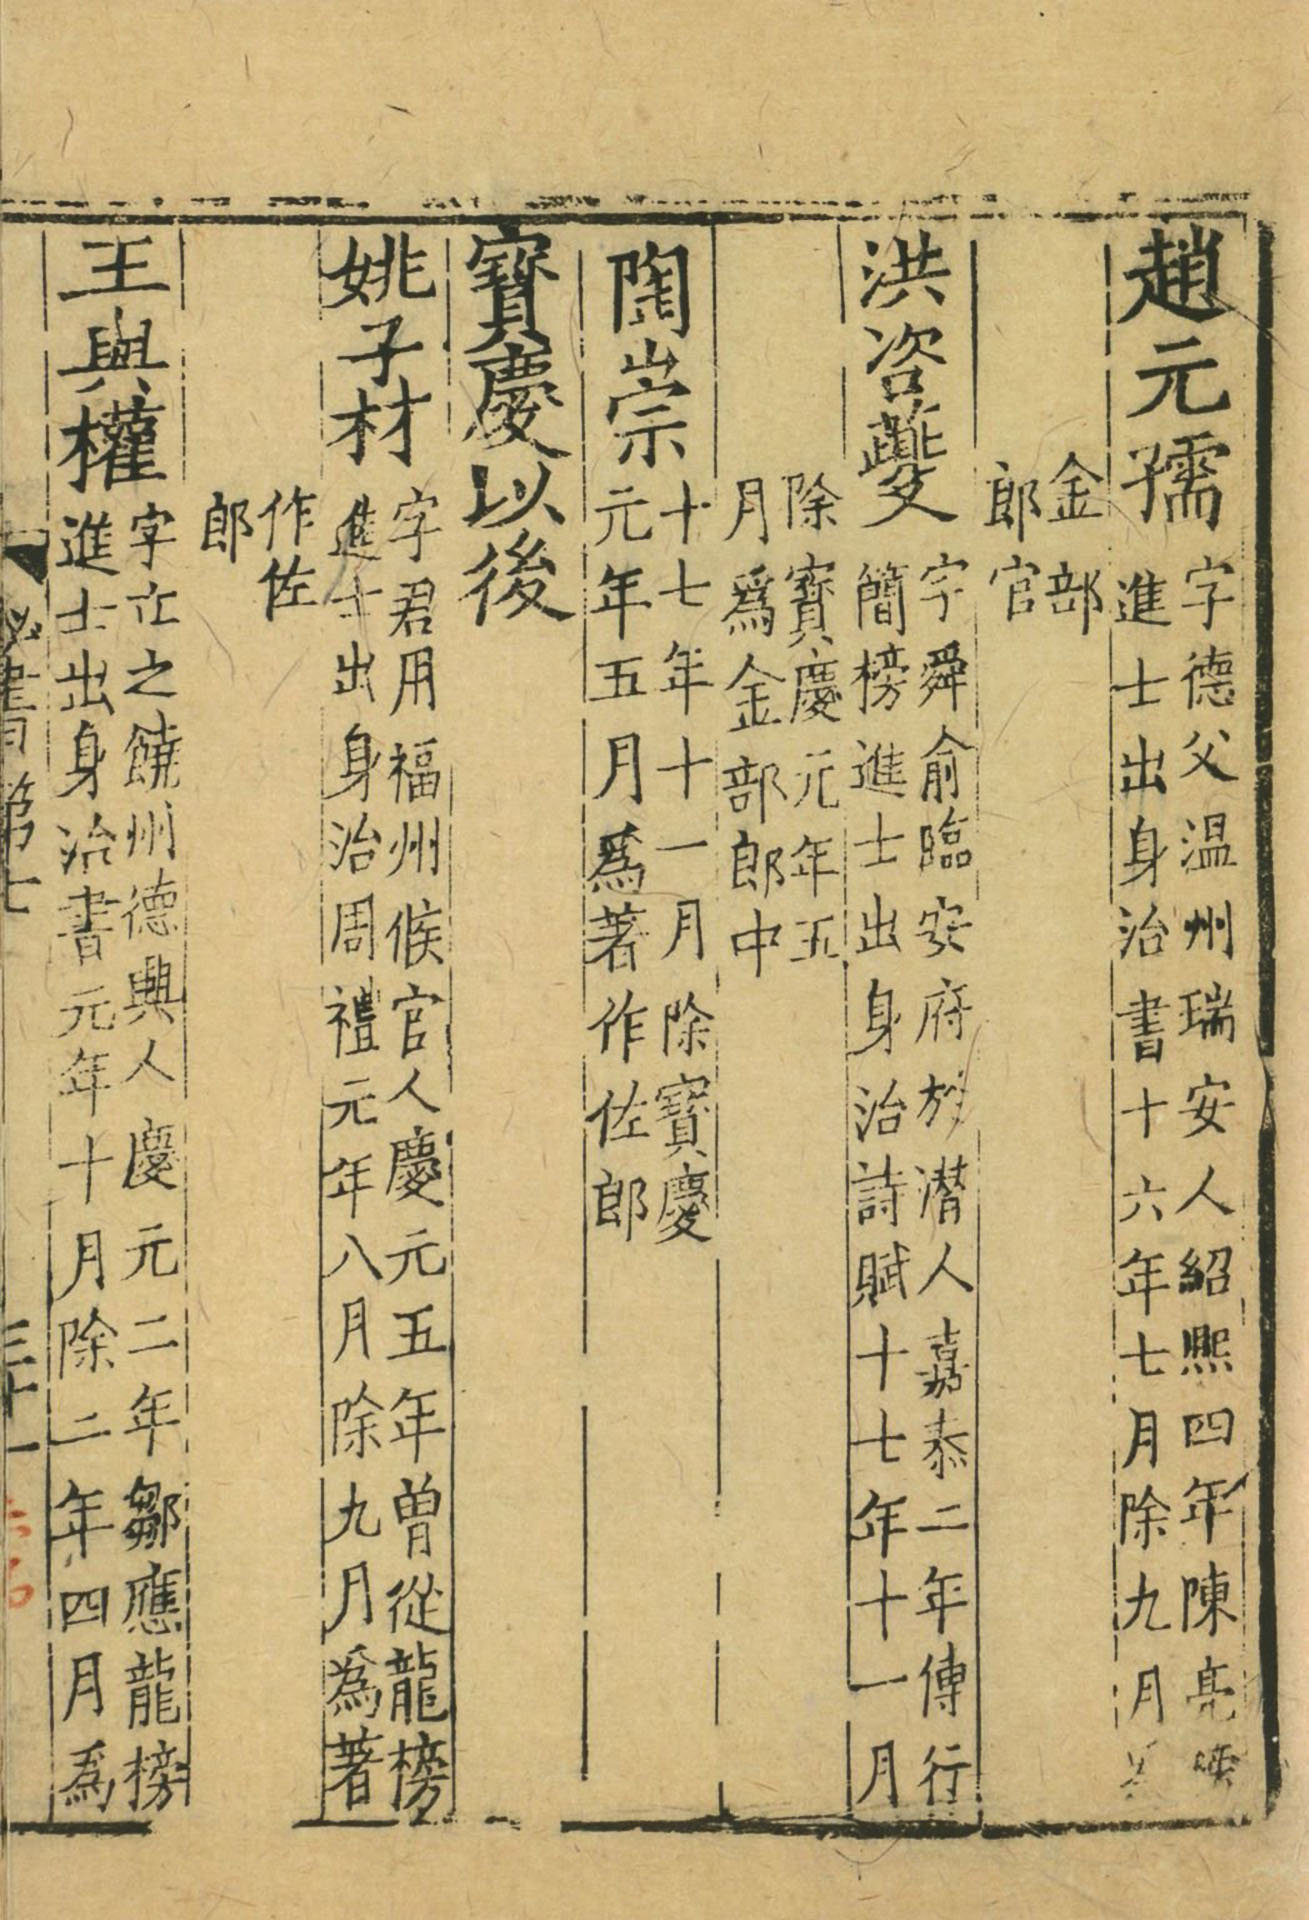 趙元孺
字德父温州瑞安人紹熙四年陳亮榜
進士出身治書十六年七月除九月爲
金部
郎官
洪咨夔
字舜俞臨安府於潛人嘉泰二年傅行
簡榜進士出身治詩賦十七年十一月
除寶慶元年五
月爲金部郎中
陶崇
十七年十一月除寶慶
元年五月爲著作佐郎
寶慶以後
姚子材
字君用福州候官人慶元五年曾從龍榜
進士出身治周禮元年八月除九月爲著
作佐
郎
王與權
字立之饒州德興人慶元二年鄒應龍榜
進士出身治書元年十月除二年四月爲
秘書省第七
三十一